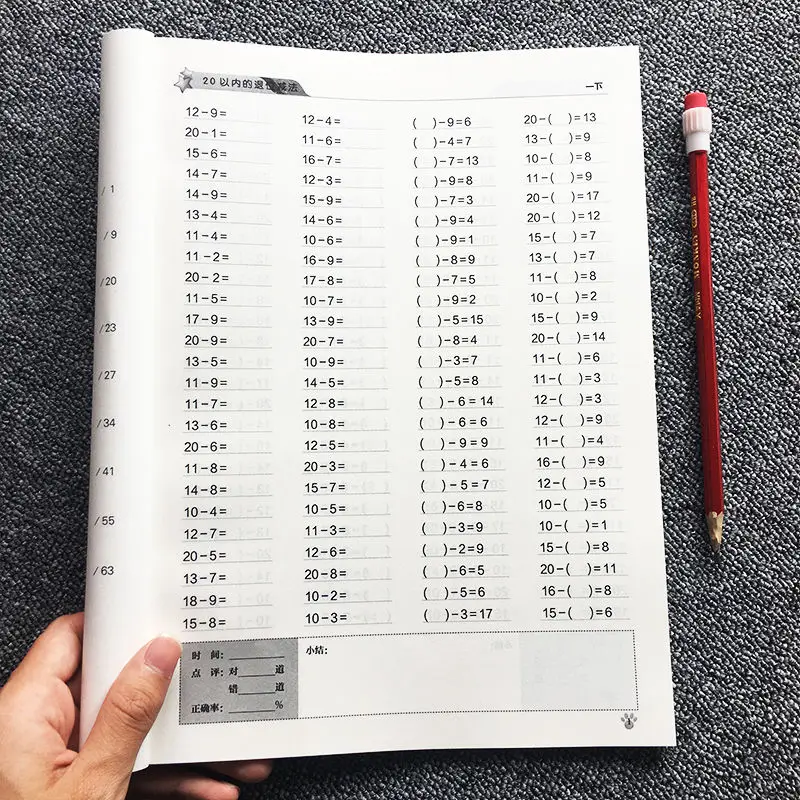 20以内的退位减法 一下
12-9= 12-4= ( )-9=6 20-( )=13
20-1= 11-6= ( )-4=7 13-( )=9
15-6= 16-7= ( )-7=13 10-( )=8
14-7= 12-3= ( )-9=8 11-( )=9
14-9= 15-9= ( )-7=3 20-( )=17
13-4= 14-6= ( )-9=4 20-( )=12
11-4= 10-6= ( )-9=1 15-( )=7
11-2= 16-9= ( )-8=9 13-( )=7
20-2= 17-8= ( )-7=5 11-( )=8
11-5= 10-7= ( )-9=2 10-( )=2
17-9= 13-9= ( )-5=15 15-( )=9
20-9= 20-7= ( )-8=4 20-( )=14
13-5= 10-9= ( )-3=7 11-( )=6
11-9= 14-5= ( )-5=8 11-( )=3
11-7= 12-8= ( )-6=14 12-( )=3
13-6= 10-8= ( )-6=6 12-( )=9
20-6= 12-5= ( )-9=9 11-( )=4
11-8= 20-3= ( )-4=6 16-( )=9
14-8= 15-7= ( )-5=7 12-( )=5
10-4= 10-5= ( )-6=8 10-( )=5
12-7= 11-3= ( )-3=9 10-( )=1
20-5= 12-6= ( )-2=9 15-( )=8
13-7= 20-8= ( )-6=5 20-( )=11
18-9= 10-2= ( )-5=6 16-( )=8
15-8= 10-3= ( )-3=17 15-( )=6
时 间：______
点 评：对______道
错______道
正确率：______%
小结：
/ 1
/ 9
/20
/23
/27
/34
/41
/55
/63